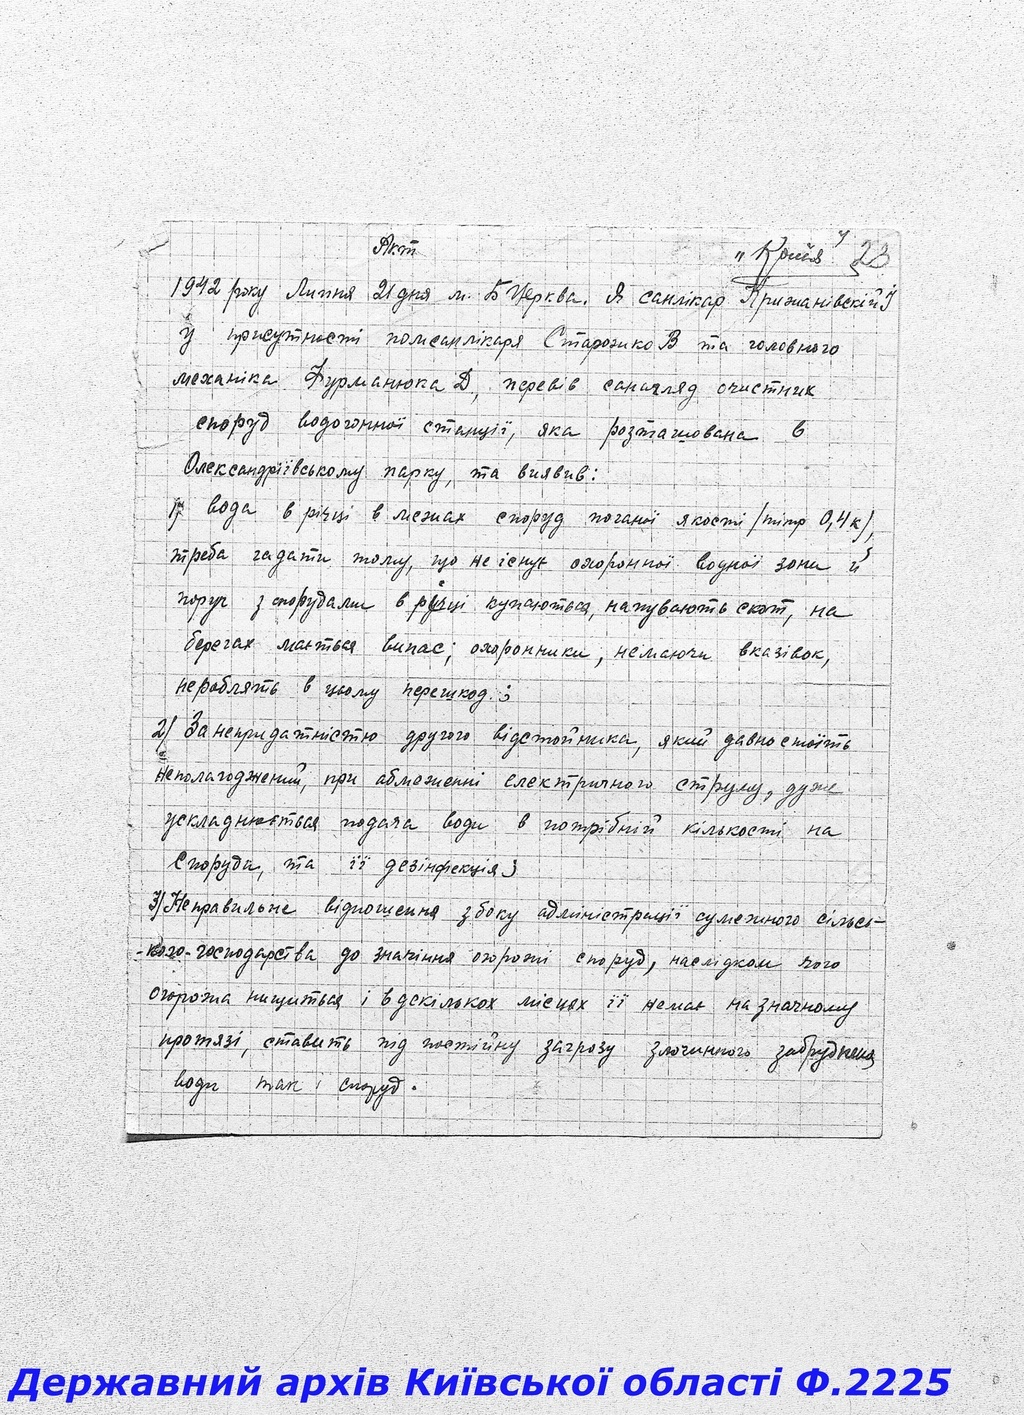 Акт
"Копія" 23
1942 року Липня 21 дня м. Б Церква. Я санлікар Крижанівскій
У присутності помсанлікаря Старошко В та головного
механіка Фурманюка Д, перевів саногляд очистних
споруд водогонної станції, яка розташована в
Олександріївському парку, та виявив:
1) вода в річці в межах споруд поганої якості /титр 0,4к/,
треба гадати тому, що не існує охоронної водної зони й
поруч з спорудами в річці купаються, напувають скот, на
берегах мається випас; охоронники, немаючи вказівок,
нероблять в цьому перешкод.;
2) Занепридатністю другого відстойника, який давно стоїть
неполагоджений, при обмеженні електричного струму, дуже
ускладнюється подача води в потрібній кількості на
Споруда, та її дезінфекція;
3) Неправильне відношення збоку адміністрації сумежного сільсь-
-кого-господарства до значіння огорожі споруд, наслідком чого
огорожа нищиться і в декількох місцях її немає на значному
протязі, ставить під постійну загрозу злочинного забруднення
води так і споруд.
Державний архів Київської області Ф.2225